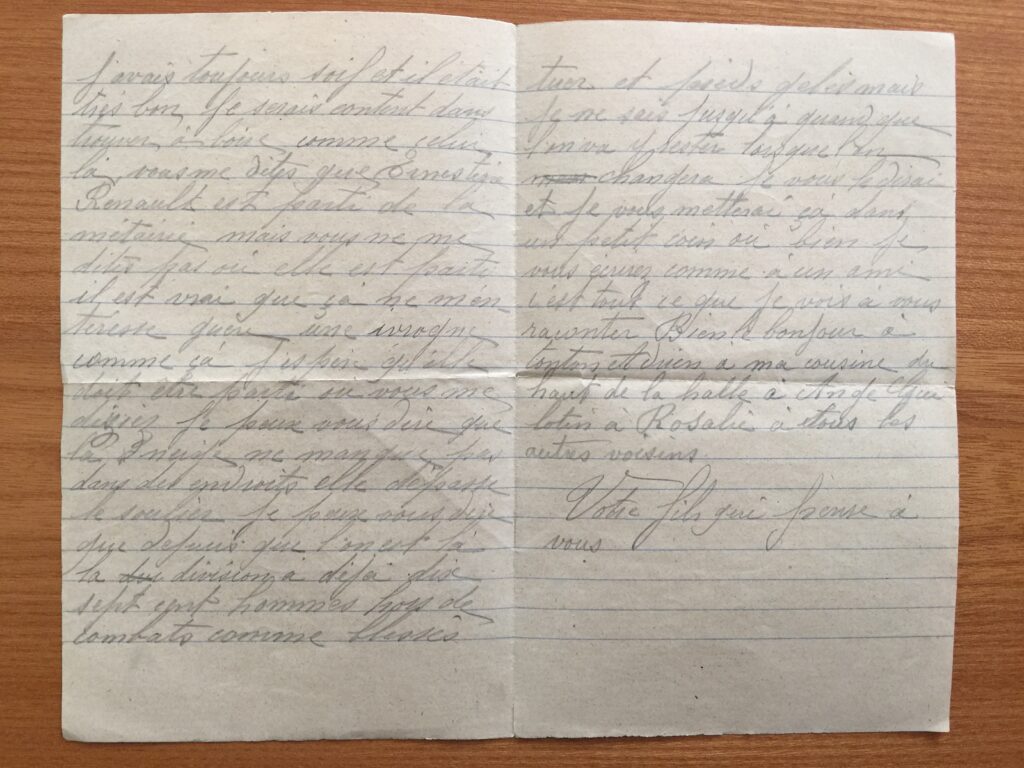 j'avais toujours soif et il était
très bon je serais content dans
trouver à boire comme celui
là, vous me dites que Ernestine
Renault est parti de la
métairie mais vous ne me
dites pas où elle est partie
il est vrai que çà ne m'en
téresse guère une ivrogne
comme çà j'espère qu'elle
doit être partie ou vous me
disiez je peux vous dire que
la neige ne manque pas
dans des endroits elle dépasse
le soulier je peux vous dire
que depuis que l'on est là
la division à déjà dix
sept cent hommes hors de
combats comme blessés
tuer et pieds gelés mais
je ne sais jusqu'à quand que
l'on va y rester lorsque l'on
changera je vous le dirai
et je vous metterai çà dans
un petit coin où bien je
vous écirez comme à un ami
c'est tout ce que je vois à vous
raconter Bien le bonjour à
tonton à ma cousine du
haut de la halle à Ange
à Rosalie à tous les
autres voisins
Votre fils qui pense à
vous